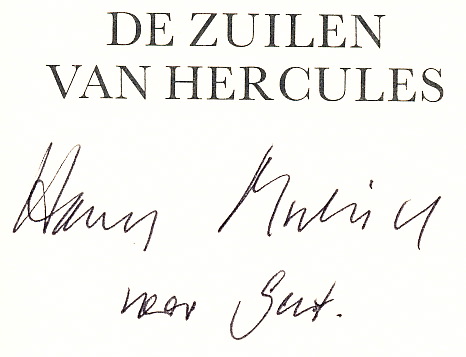 DE ZUILEN
VAN HERCULES
Harry Mulisch
voor Gert.